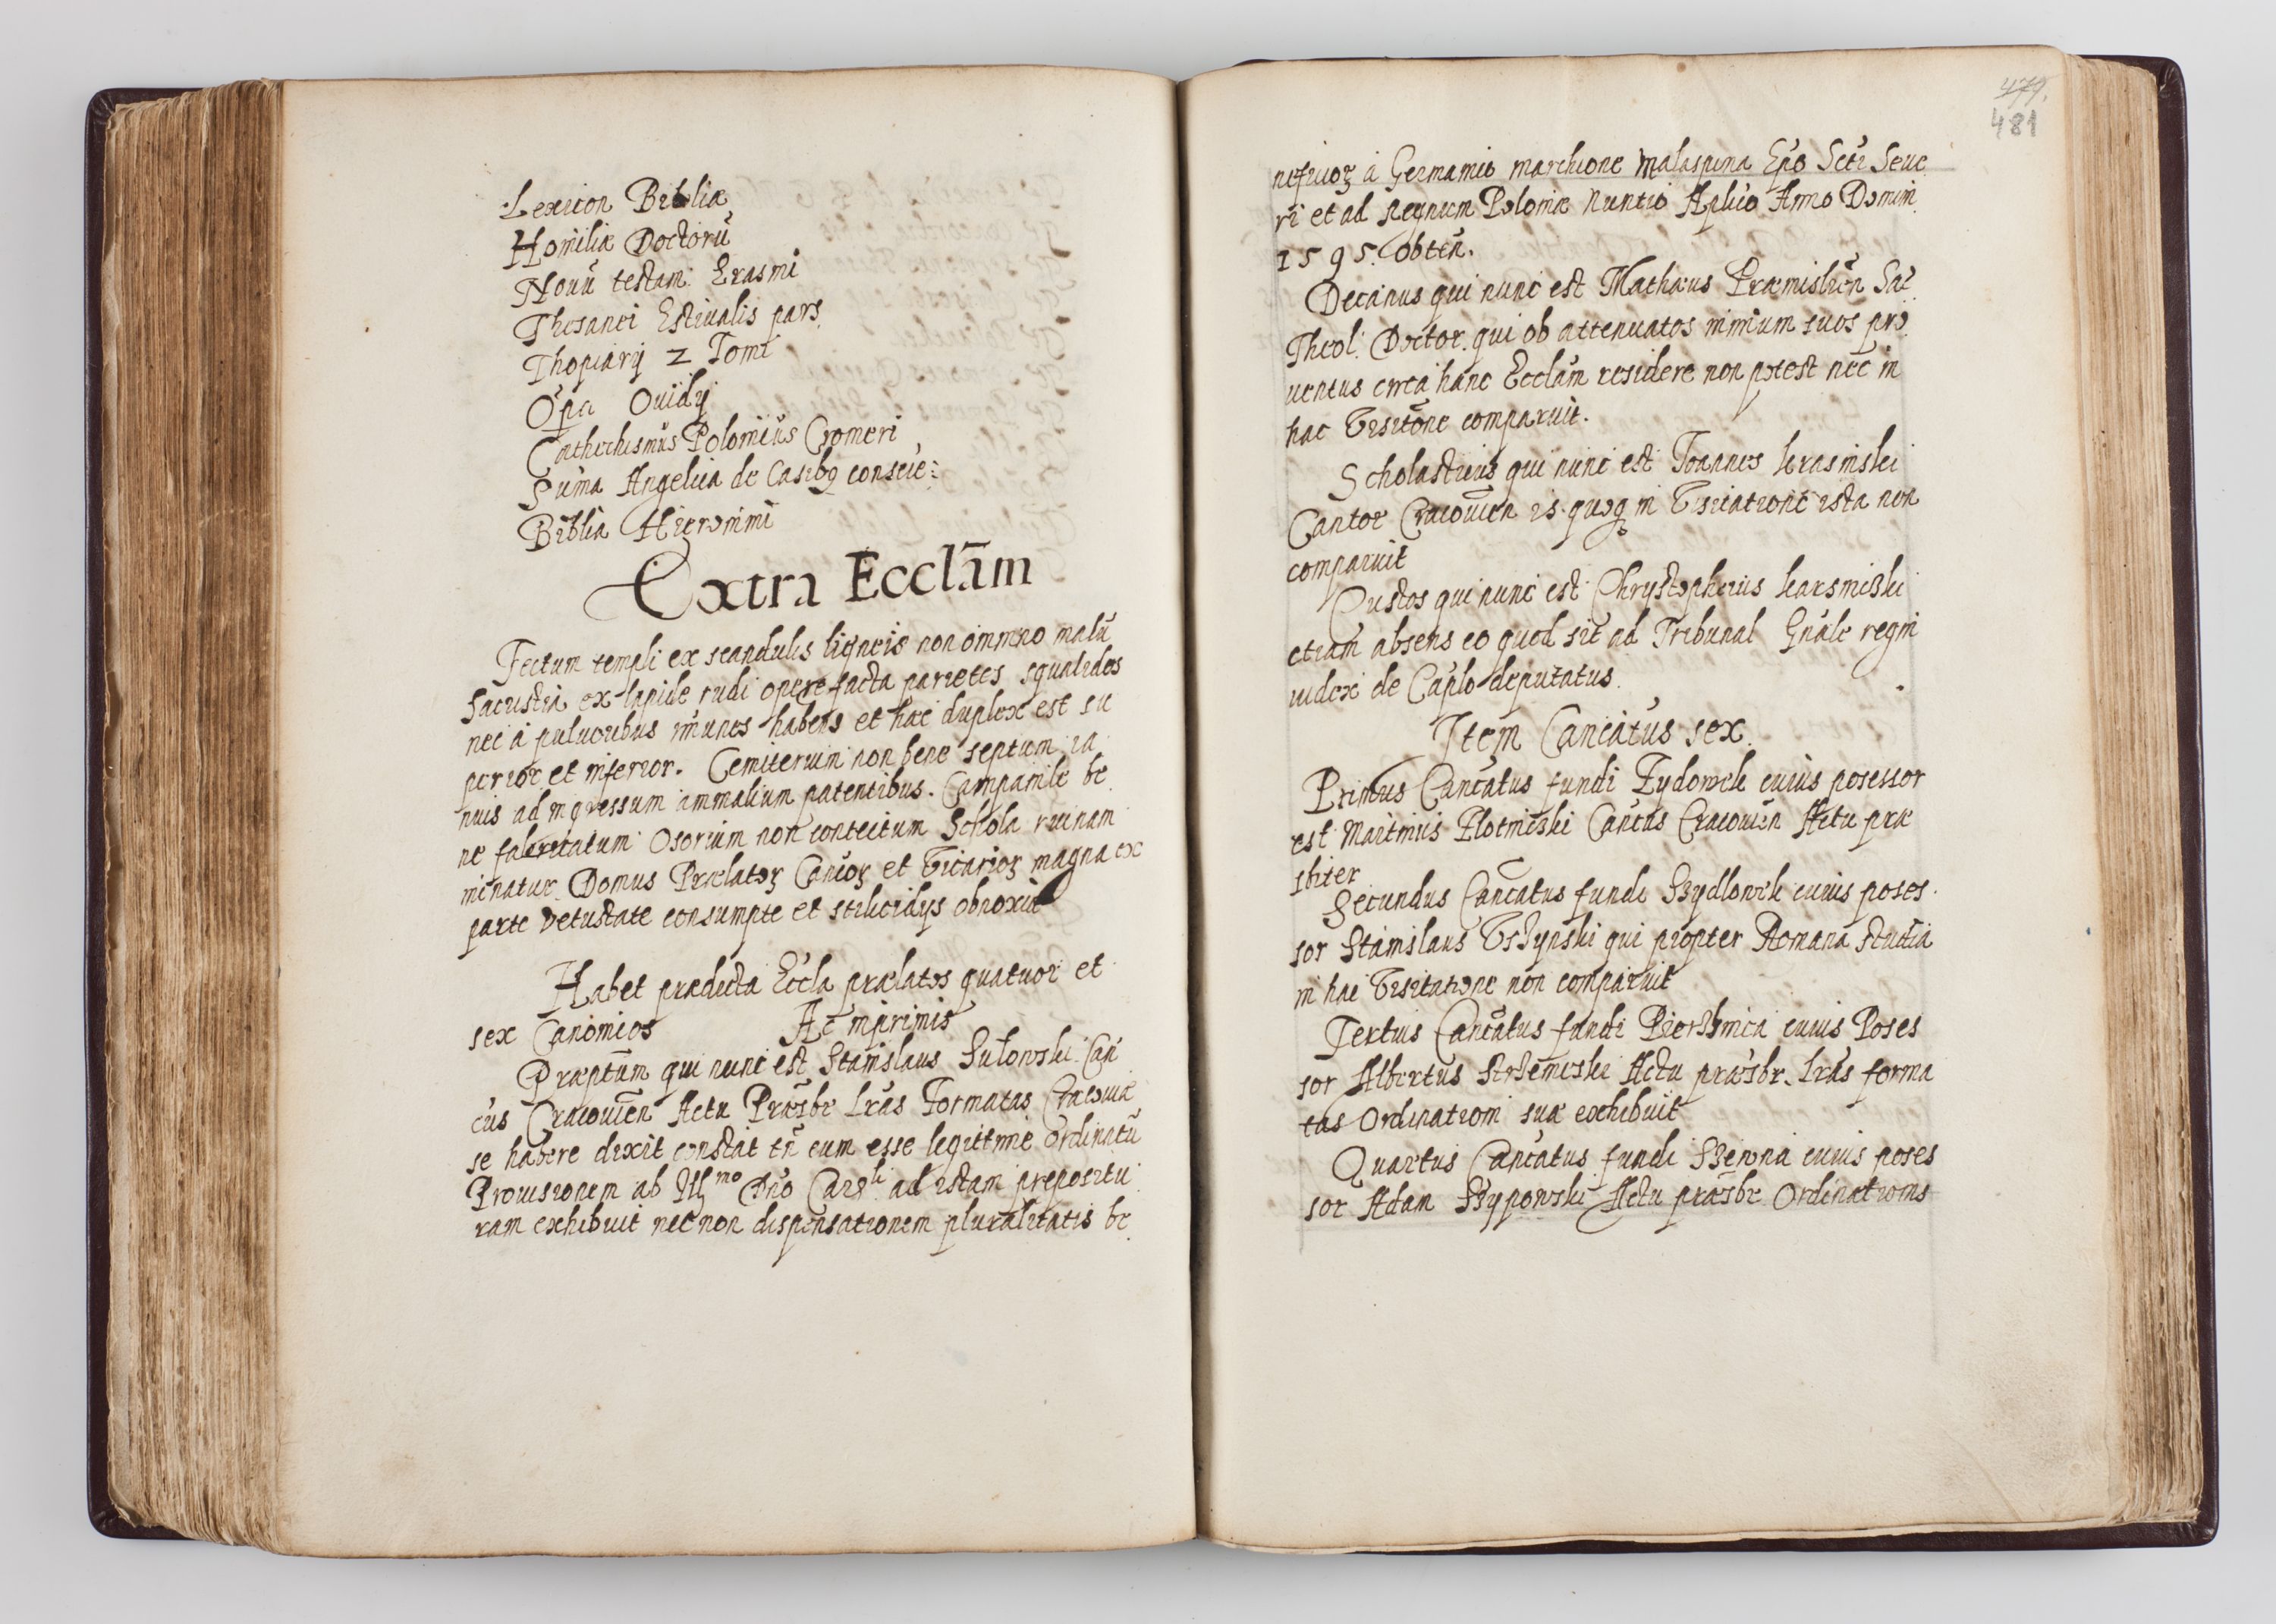 Lexicon Bibliæ
Homiliæ Doctorū
Nouū testam: Erasmi
Thesauri Estiualis pars
Thopiarij 2 Tomi
Opa Ouidij
Cathechismus Polonicus Cromeri
Suma Angelica de Casibꝫ conscie:
Biblia Hieronimi
Extra Ecclām
Tectum templi ex scandulis ligneis non omnino malū
Sacristia ex lapide rudi opere facta parietes squalidos
nec á pulueribus imunes habens et hæc duplex est su
perior et inferior. Cemiterium non bene septum ia
nuis ad ingressum animalium patentibus. Campanile be
ne fabricatum Osorium non contectum Schola ruinam
minatur Domus Prælatoꝝ Cancoꝝ et Vicarioꝝ magna ex
parte vetustate consumpte et stilicidijs obnoxiæ
Habet prædicta Eccla prælatos quatuor et
sex Canonicos Ac inprimis
Præptūm qui nunc est Stanislaus Sulowski Can
cus Cracouien Actu Præsbr Lrás Formatas Cracouiæ
se habere dixit constat tn eum esse legittime ordinatū
Prouisionem ab Illmo Dno Cardli ad istam prepositu
ram exhibuit nec non dispensationem pluralitatis be
479.
481
neficioꝝ á Germanico marchione Malaspina Epo Scti Seue
ri et ad Regnum Poloniæ Nuntio Aplico Anno Domini
1595. obten.
Decanus qui nunc est Mathæus Præmislien Sac
Theol: Doctor. qui ob attenuatos nimium suos pro
uentus circa hanc Ecclam residere non potest nec in
hac Visitone comparuit.
Scholasticus qui nunc est Joannes krasinski
Cantor Cracouien is quoqꝫ in Visitatione ista non
comparuit
Custos qui nunc est Chrystopherus karsniczki
etiam absens eo quod sit ad Tribunal Gnale regni
iudex de Caplo deputatus.
Item Cancatus sex.
Primus Cancatus fundi Zydowek cuius posessor
est Martinus Plotniczki Cancus Cracouien Actu præ
sbiter
Secundus Cancatus fundi Szydlowek cuius poses
sor Stanislaus qui propter Romana studia
in hac Visitatione non comparuit
Tertius Cancatus fundi Pierzchnica cuius Poses
sor Albertus Actu præsbr. Lrás forma
tas Ordinationi suæ exhibuit
Quartus Cancatus fundi cuius poses
sor Adam Szypowski Actu præsbr Ordinationis